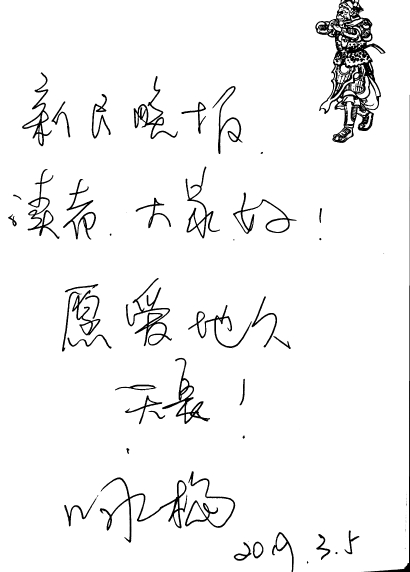 新民晚报
读者、大家好！
愿爱地久
天长！
咏梅
2019.3.5